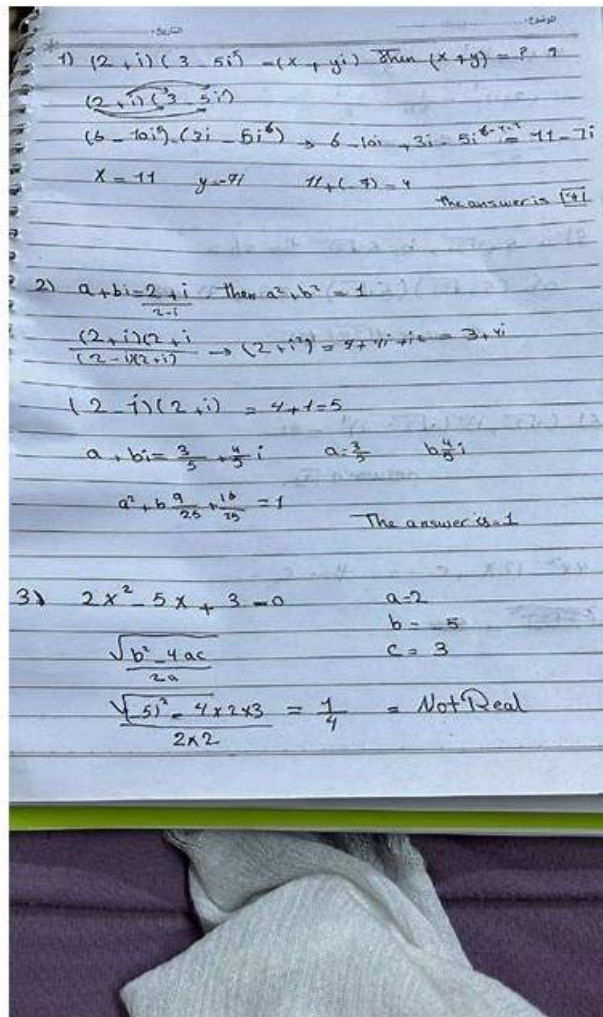 التاريخ: الموضوع:
1) (2 + i) (3 - 5i⁵) = (x + yi) Then (x + y) = ? ?
(2 + i) (3 - 5i⁵)
(6 - 10i⁵) (3i - 5i⁶) → 6 - 10i + 3i - 5i⁶ = 11 - 7i
x = 11 y = -7i 11 + (-7) = 4
The answer is 4
2) a + bi = 2 + i / 2 - i then a² + b² = 1
(2 + i)(2 + i / (2 - i)(2 + i) → (2 + i²) = 4 + 4i + i² = 3 + 4i
(2 - i)(2 + i) = 4 + 1 = 5
a + bi = 3/5 + 4/5 i a = 3/5 b 4/5 i
a² + b 9/25 + 16/25 = 1
The answer is = 1
3) 2x² - 5x + 3 = 0 a = 2
b = -5
√b² - 4ac / 2a c = 3
√(-5)² - 4 × 2 × 3 / 2×2 = 1/4 = Not Real